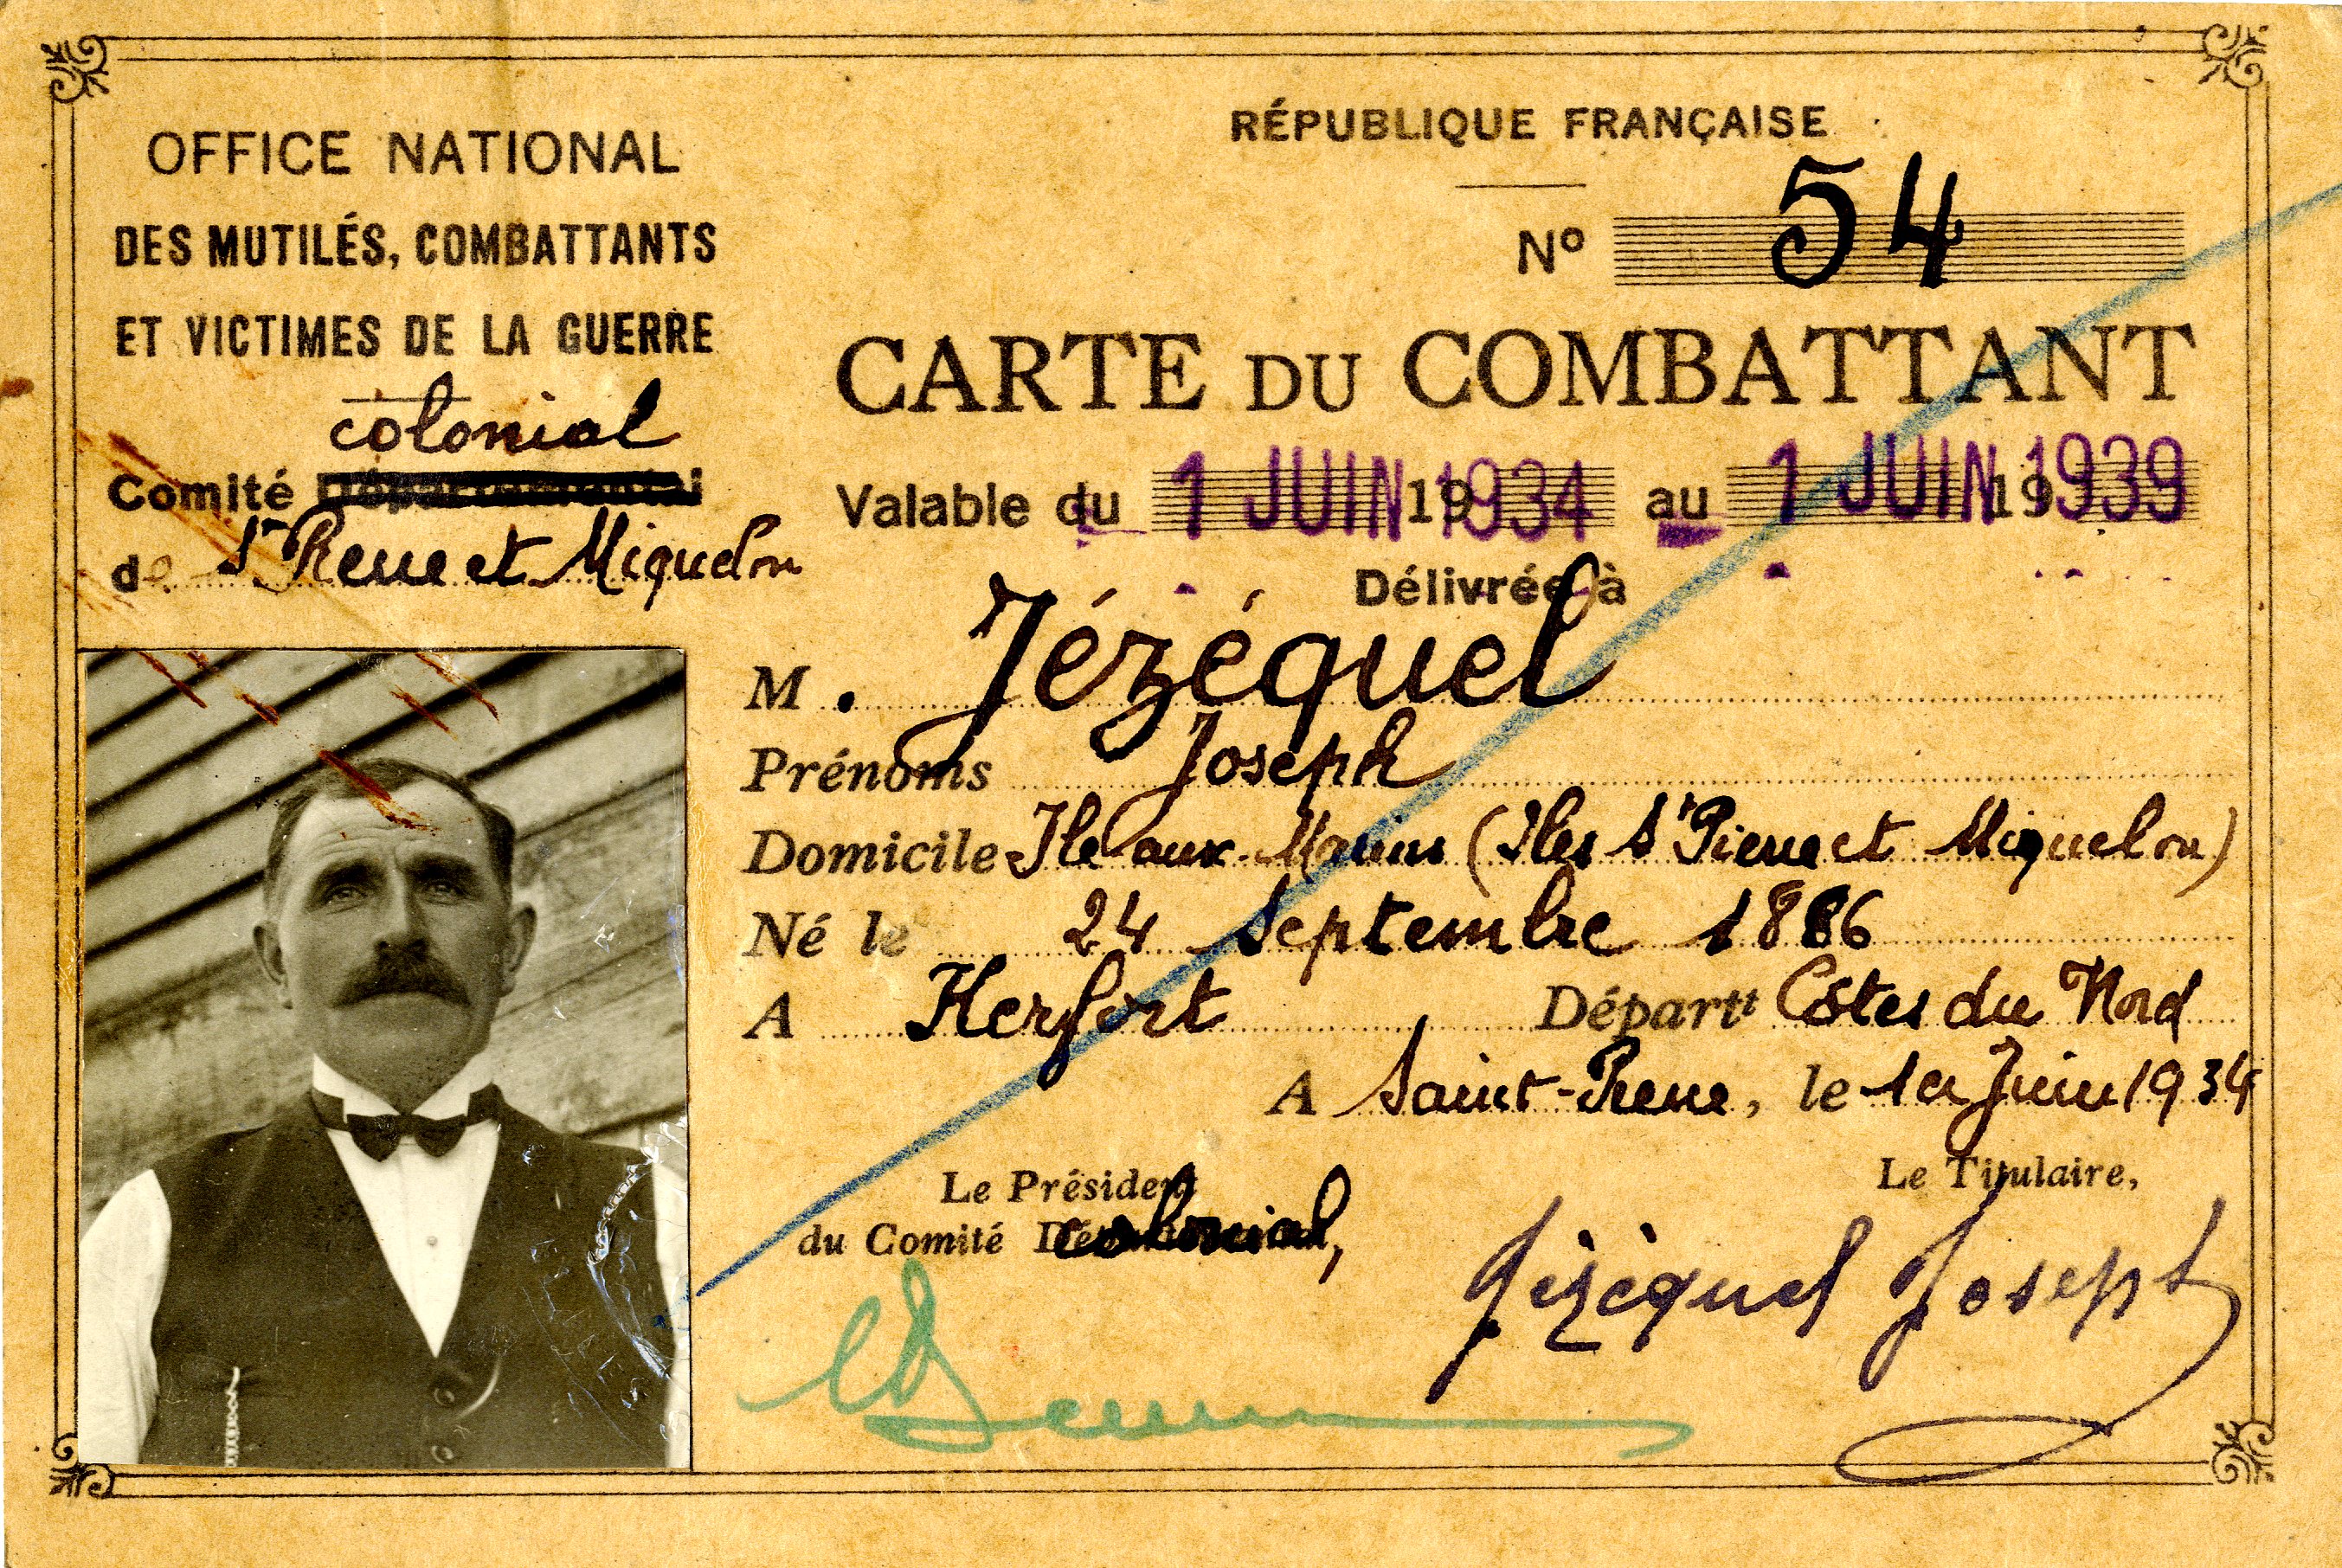 OFFICE NATIONAL
DES MUTILÉS, COMBATTANTS
ET VICTIMES DE LA GUERRE
colonial
Comité Départemental
de St Pierre et Miquelon
RÉPUBLIQUE FRANÇAISE
No 54
CARTE DU COMBATTANT
Valable du 1 JUIN 1934 au 1 JUIN 1939
Délivrée à
M. Jézéquel
Prénoms Joseph
Domicile Ile aux Marins (Iles St Pierre et Miquelon)
Né le 24 Septembre 1886
A Kerfort Départt Côtes du Nord
A Saint-Pierre, le 1er Juin 1934
Le Président
du Comité colonial,
Le Titulaire,
Jézéquel Joseph